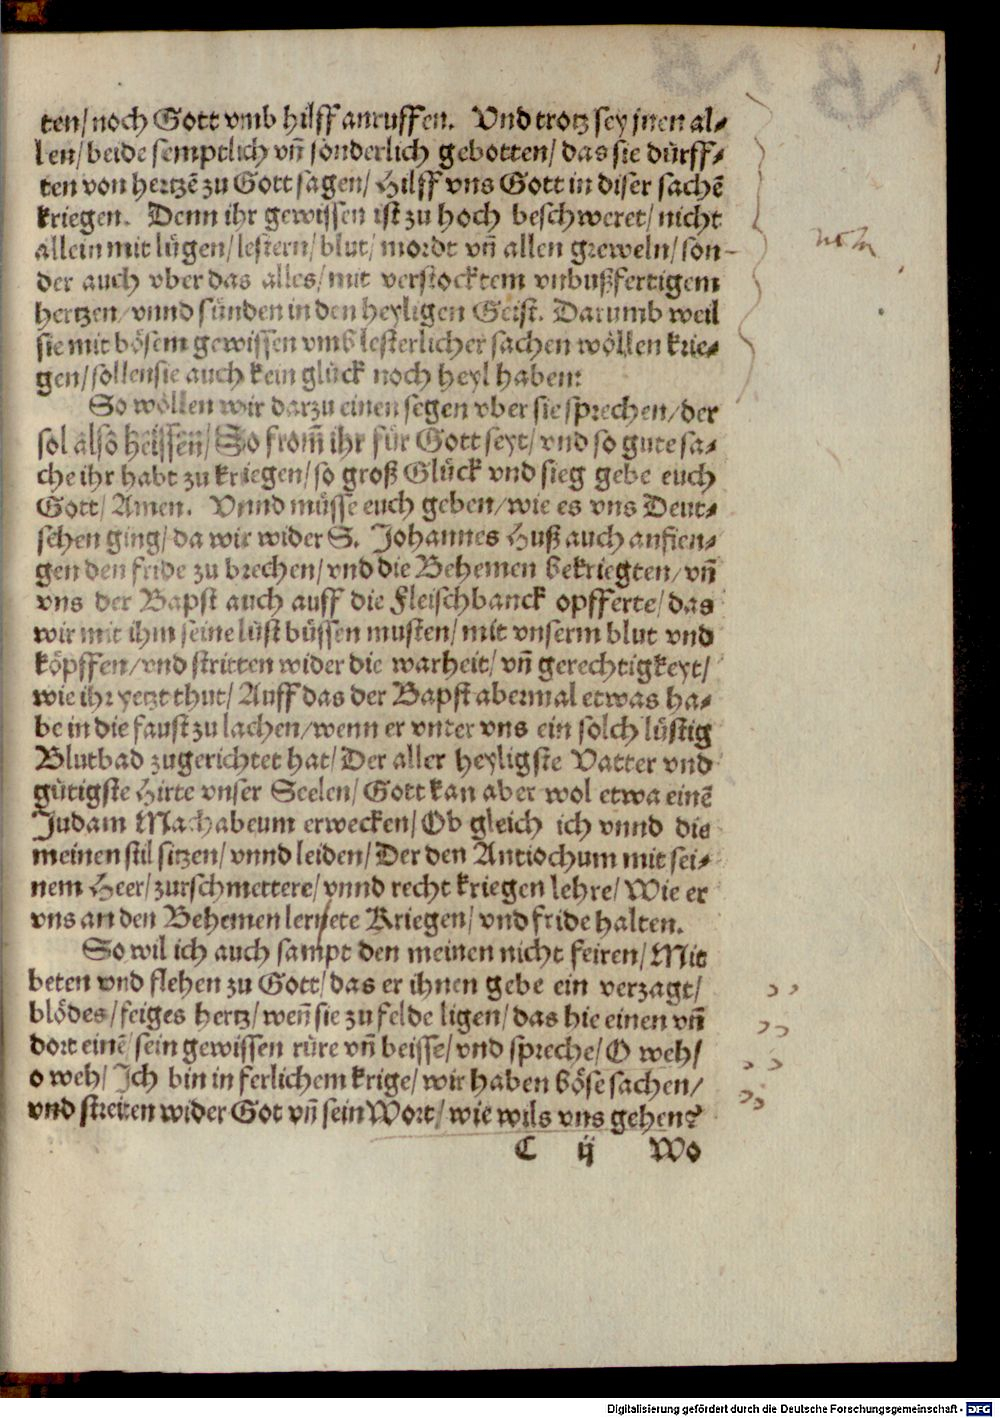 ten/ noch Gott vmb hilff anruffen. Vnd trotz sey jnen al⸗
len/ beide semptlich vñ sonderlich gebotten/ das sie dürff⸗
ten von hertzē zu Gott sagen/ Hilff vns Gott in diser sachē
kriegen. Denn ihr gewissen ist zu hoch beschweret/ nicht
allein mit lügen/ lestern/ blut/ mordt vñ allen greweln/ son⸗
der auch vber das alles/ mit verstocktem vnbußfertigem
hertzen/ vnnd sünden in den heyligen Geist. Darumb weil
sie mit bösem gewissen vmb lesterlicher sachen wöllen krie⸗
gen/ sollen sie auch kein glück noch heyl haben:
So wöllen wir darzu einen segen vber sie sprechen/ der
sol also heissen/ So from̄ ihr für Gott seyt/ vnd so gute sa⸗
che ihr habt zu kriegen/ so groß Glück vnd sieg gebe euch
Gott/ Amen. Vnnd müsse euch geben/ wie es vns Deut⸗
schen ging/ da wir wider S. Johannes Huß auch anfien⸗
gen den fride zu brechen/ vnd die Behemen bekriegten/ vñ
vns der Bapst auch auff die Fleischbanck opfferte/ das
wir mit ihm seine lüst büssen musten/ mit vnserm blut vnd
köpffen/ vnd stritten wider die warheit/ vñ gerechtigkeyt/
wie ihr yetzt thut/ Auff das der Bapst abermal etwas ha⸗
be in die faust zu lachen/ wenn er vnter vns ein solch lüstig
Blutbad zugerichtet hat/ Der aller heyligste Vatter vnd
gütigste Hirte vnser Seelen/ Gott kan aber wol etwa einē
Judam Machabeum erwecken/ Ob gleich ich vnnd die
meinen stil sitzen/ vnnd leiden/ Der den Antiochum mit sei⸗
nem Heer/ zurschmettere/ vnnd recht kriegen lehre/ Wie er
vns an den Behemen lernete Kriegen/ vnd fride halten.
So wil ich auch sampt den meinen nicht feiren/ Mit
beten vnd flehen zu Gott/ das er ihnen gebe ein verzagt/
blödes/ feiges hertz/ weñ sie zu felde ligen/ das hie einen vñ
dort einē/ sein gewissen rüre vñ beisse/ vnd spreche/ O weh/
o weh/ Ich bin in ferlichem krige/ wir haben böse sachen/
vnd streiten wider Got vñ sein Wort/ wie wils vns gehen?
C ij Wo
Digitalisierung gefördert durch die Deutsche Forschungsgemeinschaft - DFG